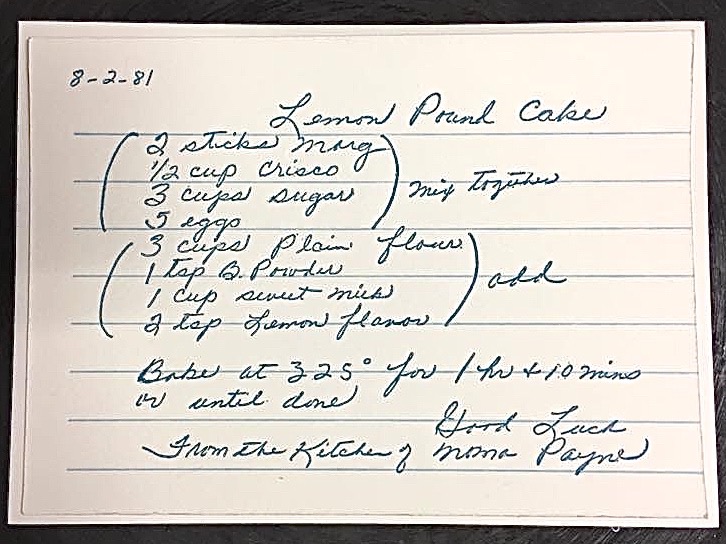 8-2-81
Lemon Pound Cake
2 sticks marg
1/2 cup crisco
3 cups sugar
5 eggs
mix together
3 cups Plain flour
1 tsp B. Powder
1 cup sweet milk
2 tsp Lemon flavor
add
Bake at 325° for 1 hr & 10 mins
or until done
Good Luck
From the Kitchen of Moma Payne